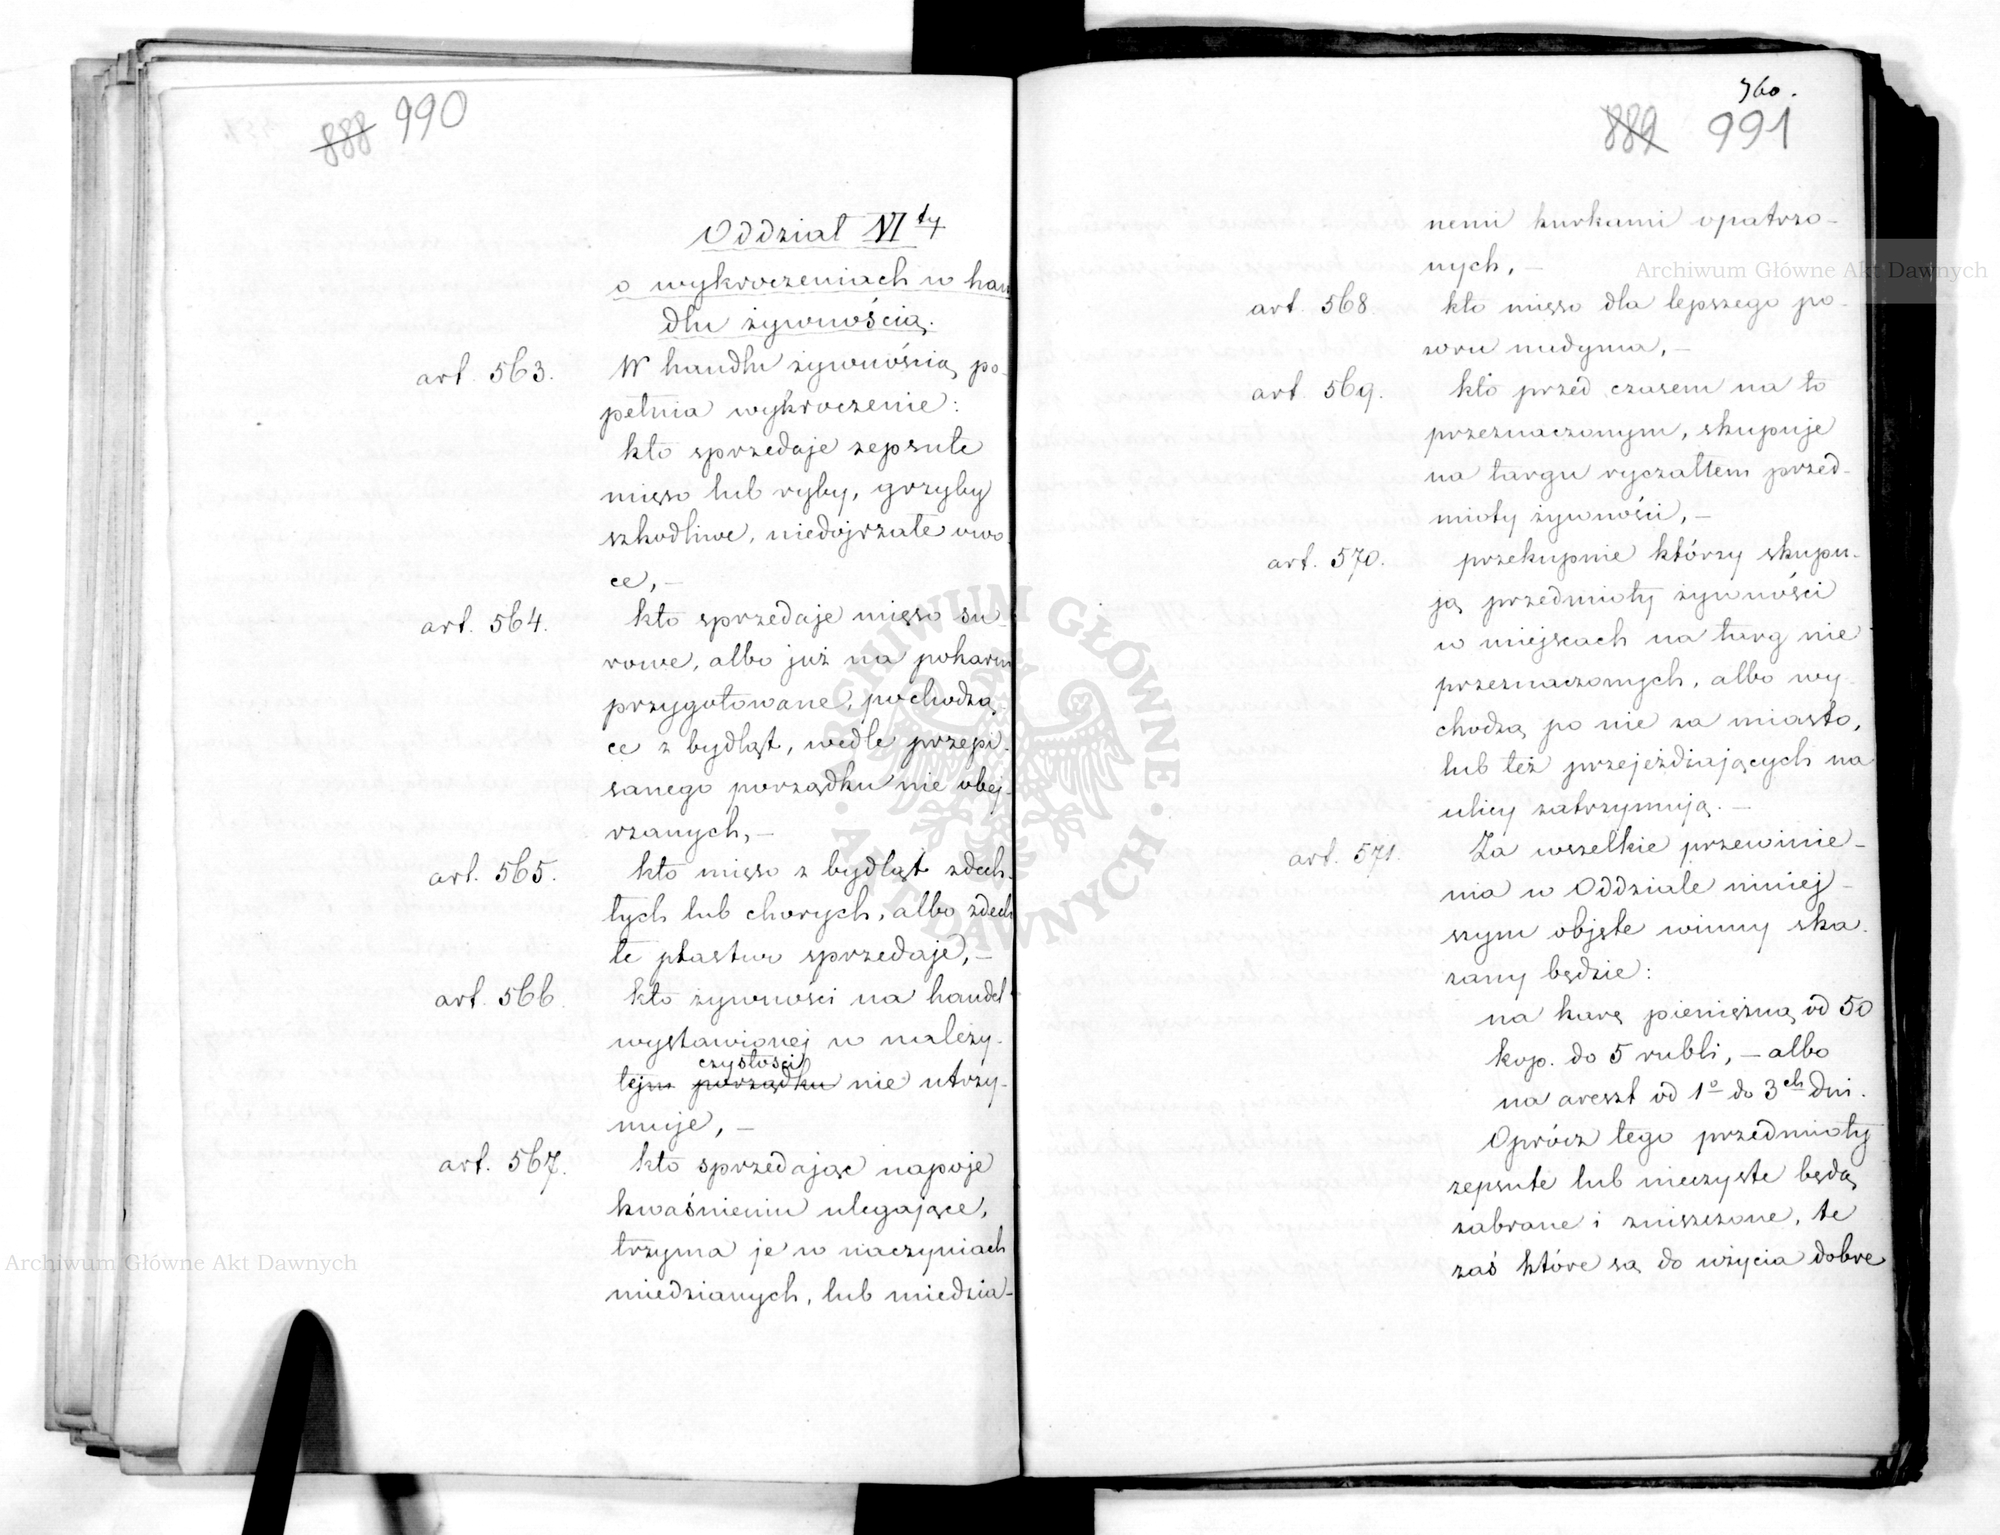 888 990
Oddział VI ty
o wykroczeniach w han
dlu żywnością.
art. 563. W handlu żywnością po-
pełnia wykroczenie:
kto sprzedaje zepsute
mięso lub ryby, grzyby
szkodliwe, niedojrzałe owo-
ce, —
art. 564. kto sprzedaje mięso su-
rowe, albo już na pokarm
przygotowane, pochodzą
ce z bydląt, wedle przepi-
sanego porządku nie obej-
rzanych, —
art. 565. kto mięso z bydląt zdech-
łych lub chorych, albo zdech
łe ptastwo sprzedaje, —
art. 566. kto żywności na handel
wystawionej w należy-
czystości
tejm porządku nie utrzy-
muje, —
art. 567. kto sprzedając napoje
kwaśnieniu ulegające,
trzyma je w naczyniach
miedzianych, lub miedzia-
760.
889 991
nemi kurkami opatrzo-
nych, —
art. 568. kto mięso dla lepszego po-
zoru nadyma, —
art. 569. kto przed czasem na to
przeznaczonym, skupuje
na targu ryczałtem przed-
mioty żywności, —
art. 570. przekupnie którzy skupu-
ją przedmioty żywności
w miejscach na targ nie
przeznaczonych, albo wy-
chodzą po nie za miasto,
lub też przejeżdżających na
ulicy zatrzymują. —
art. 571. Za wszelkie przewinie-
nia w Oddziale niniej-
szym objęte winny ska-
zany będzie:
na karę pieniężną od 50
kop. do 5 rubli, — albo
na areszt od 1o do 3ch dni.
Oprócz tego przedmioty
zepsute lub nieczyste będą
zabrane i zniszczone, te
zaś które są do użycia dobre
Archiwum Główne Akt Dawnych
Archiwum Główne Akt Dawnych
ARCHIWUM GŁÓWNE · AKT DAWNYCH ·